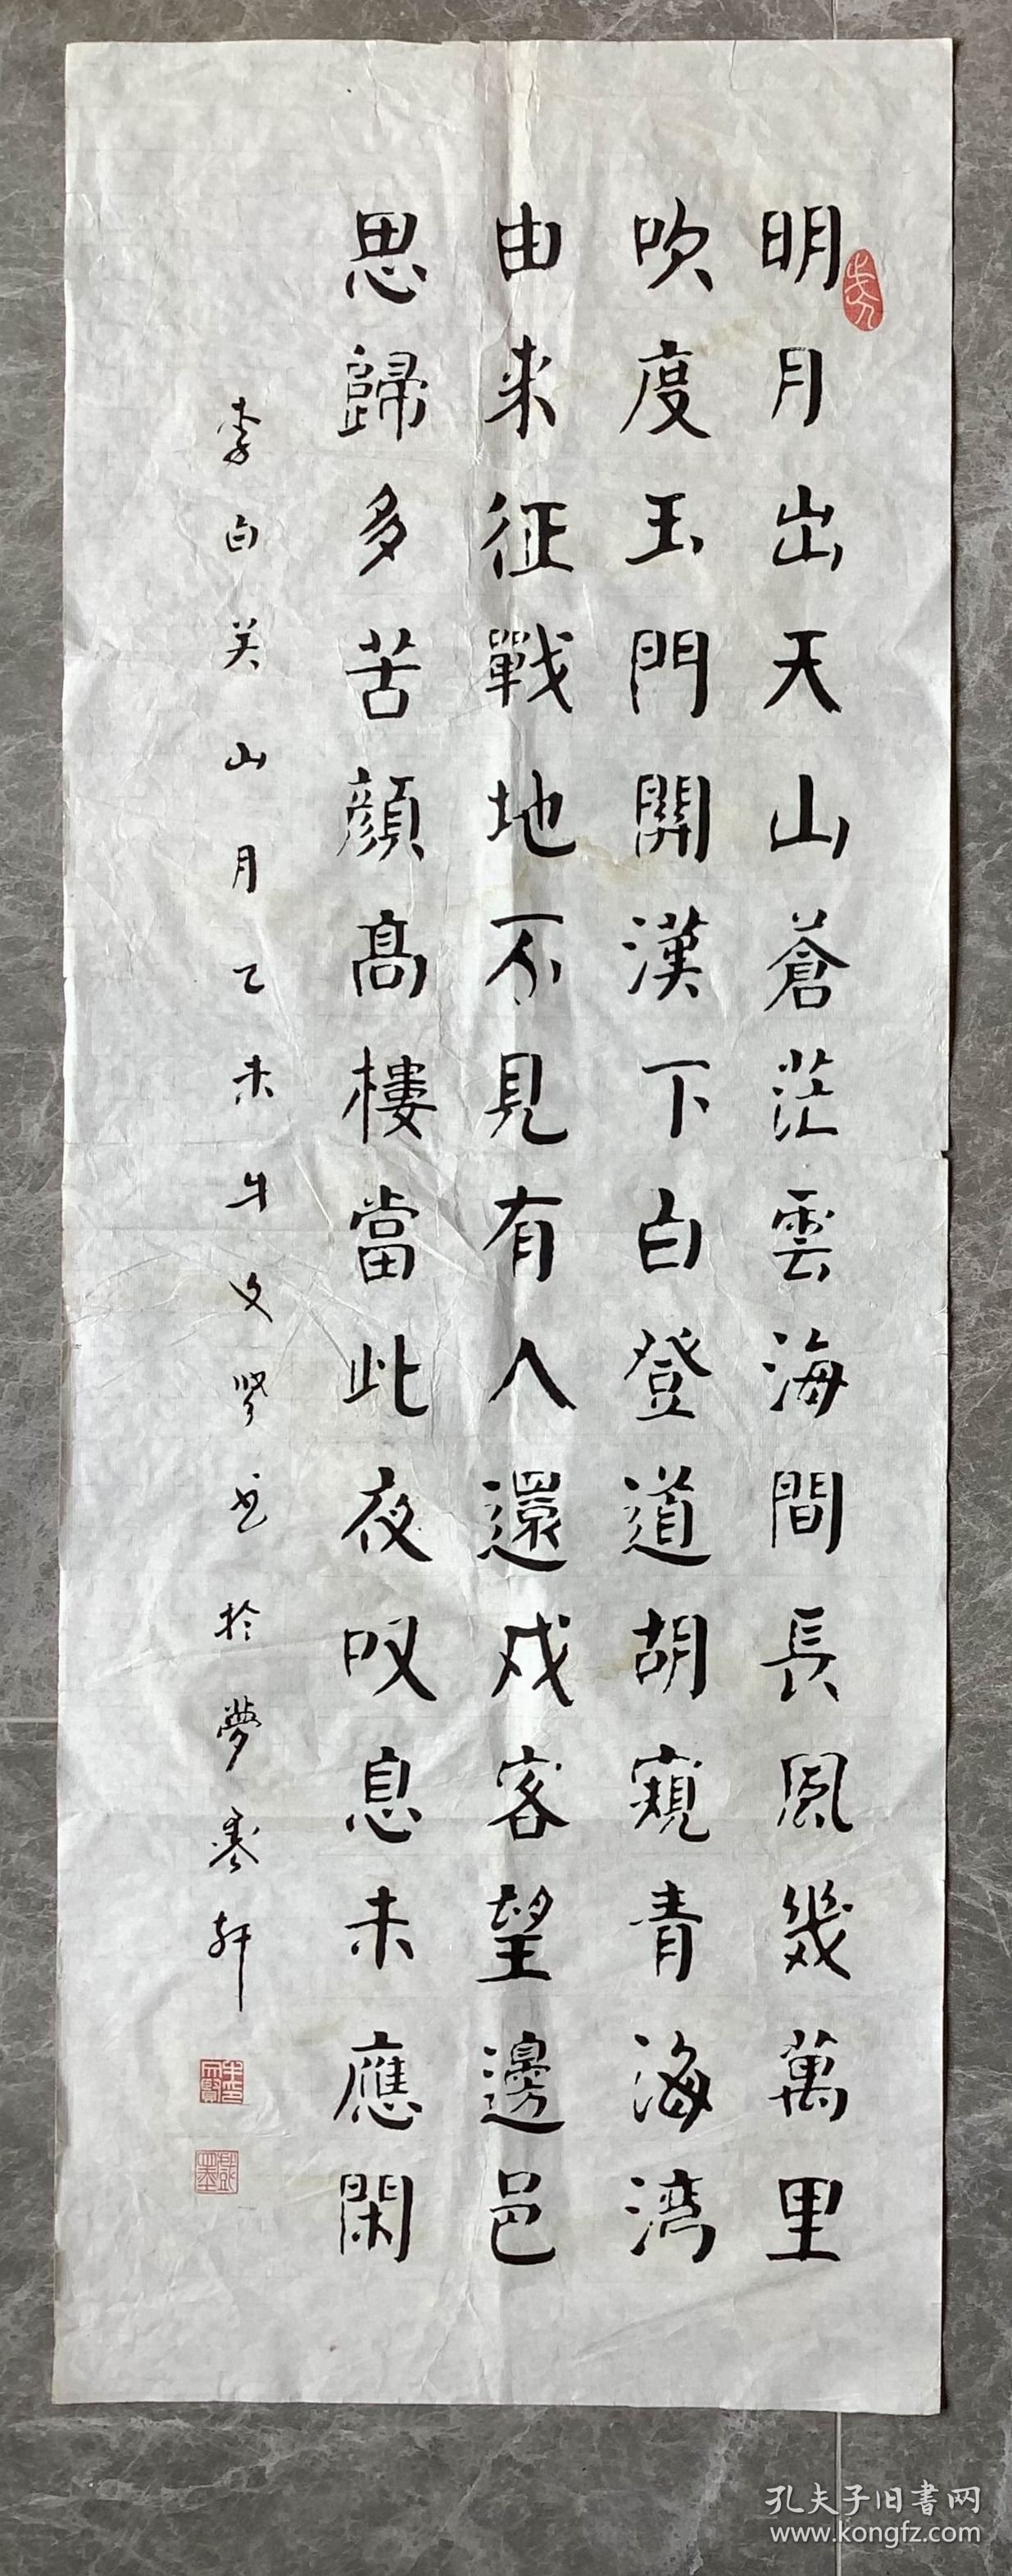 明月出天山蒼茫雲海間長風幾萬里
吹度玉門關漢下白登道胡窺青海湾
由來征戰地不見有人還戍客望邊邑
思歸多苦顔高樓當此夜叹息未應閑
李白关山月乙未牛文學书於夢卷軒
孔夫子旧書网
www.kongfz.com